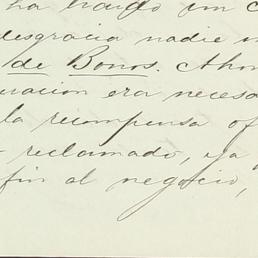 ha traido un c
desgracia nadie
de Bonos. Ahor
uracion era necesa
la recompensa of
reclamado, ya
fin al negocio,